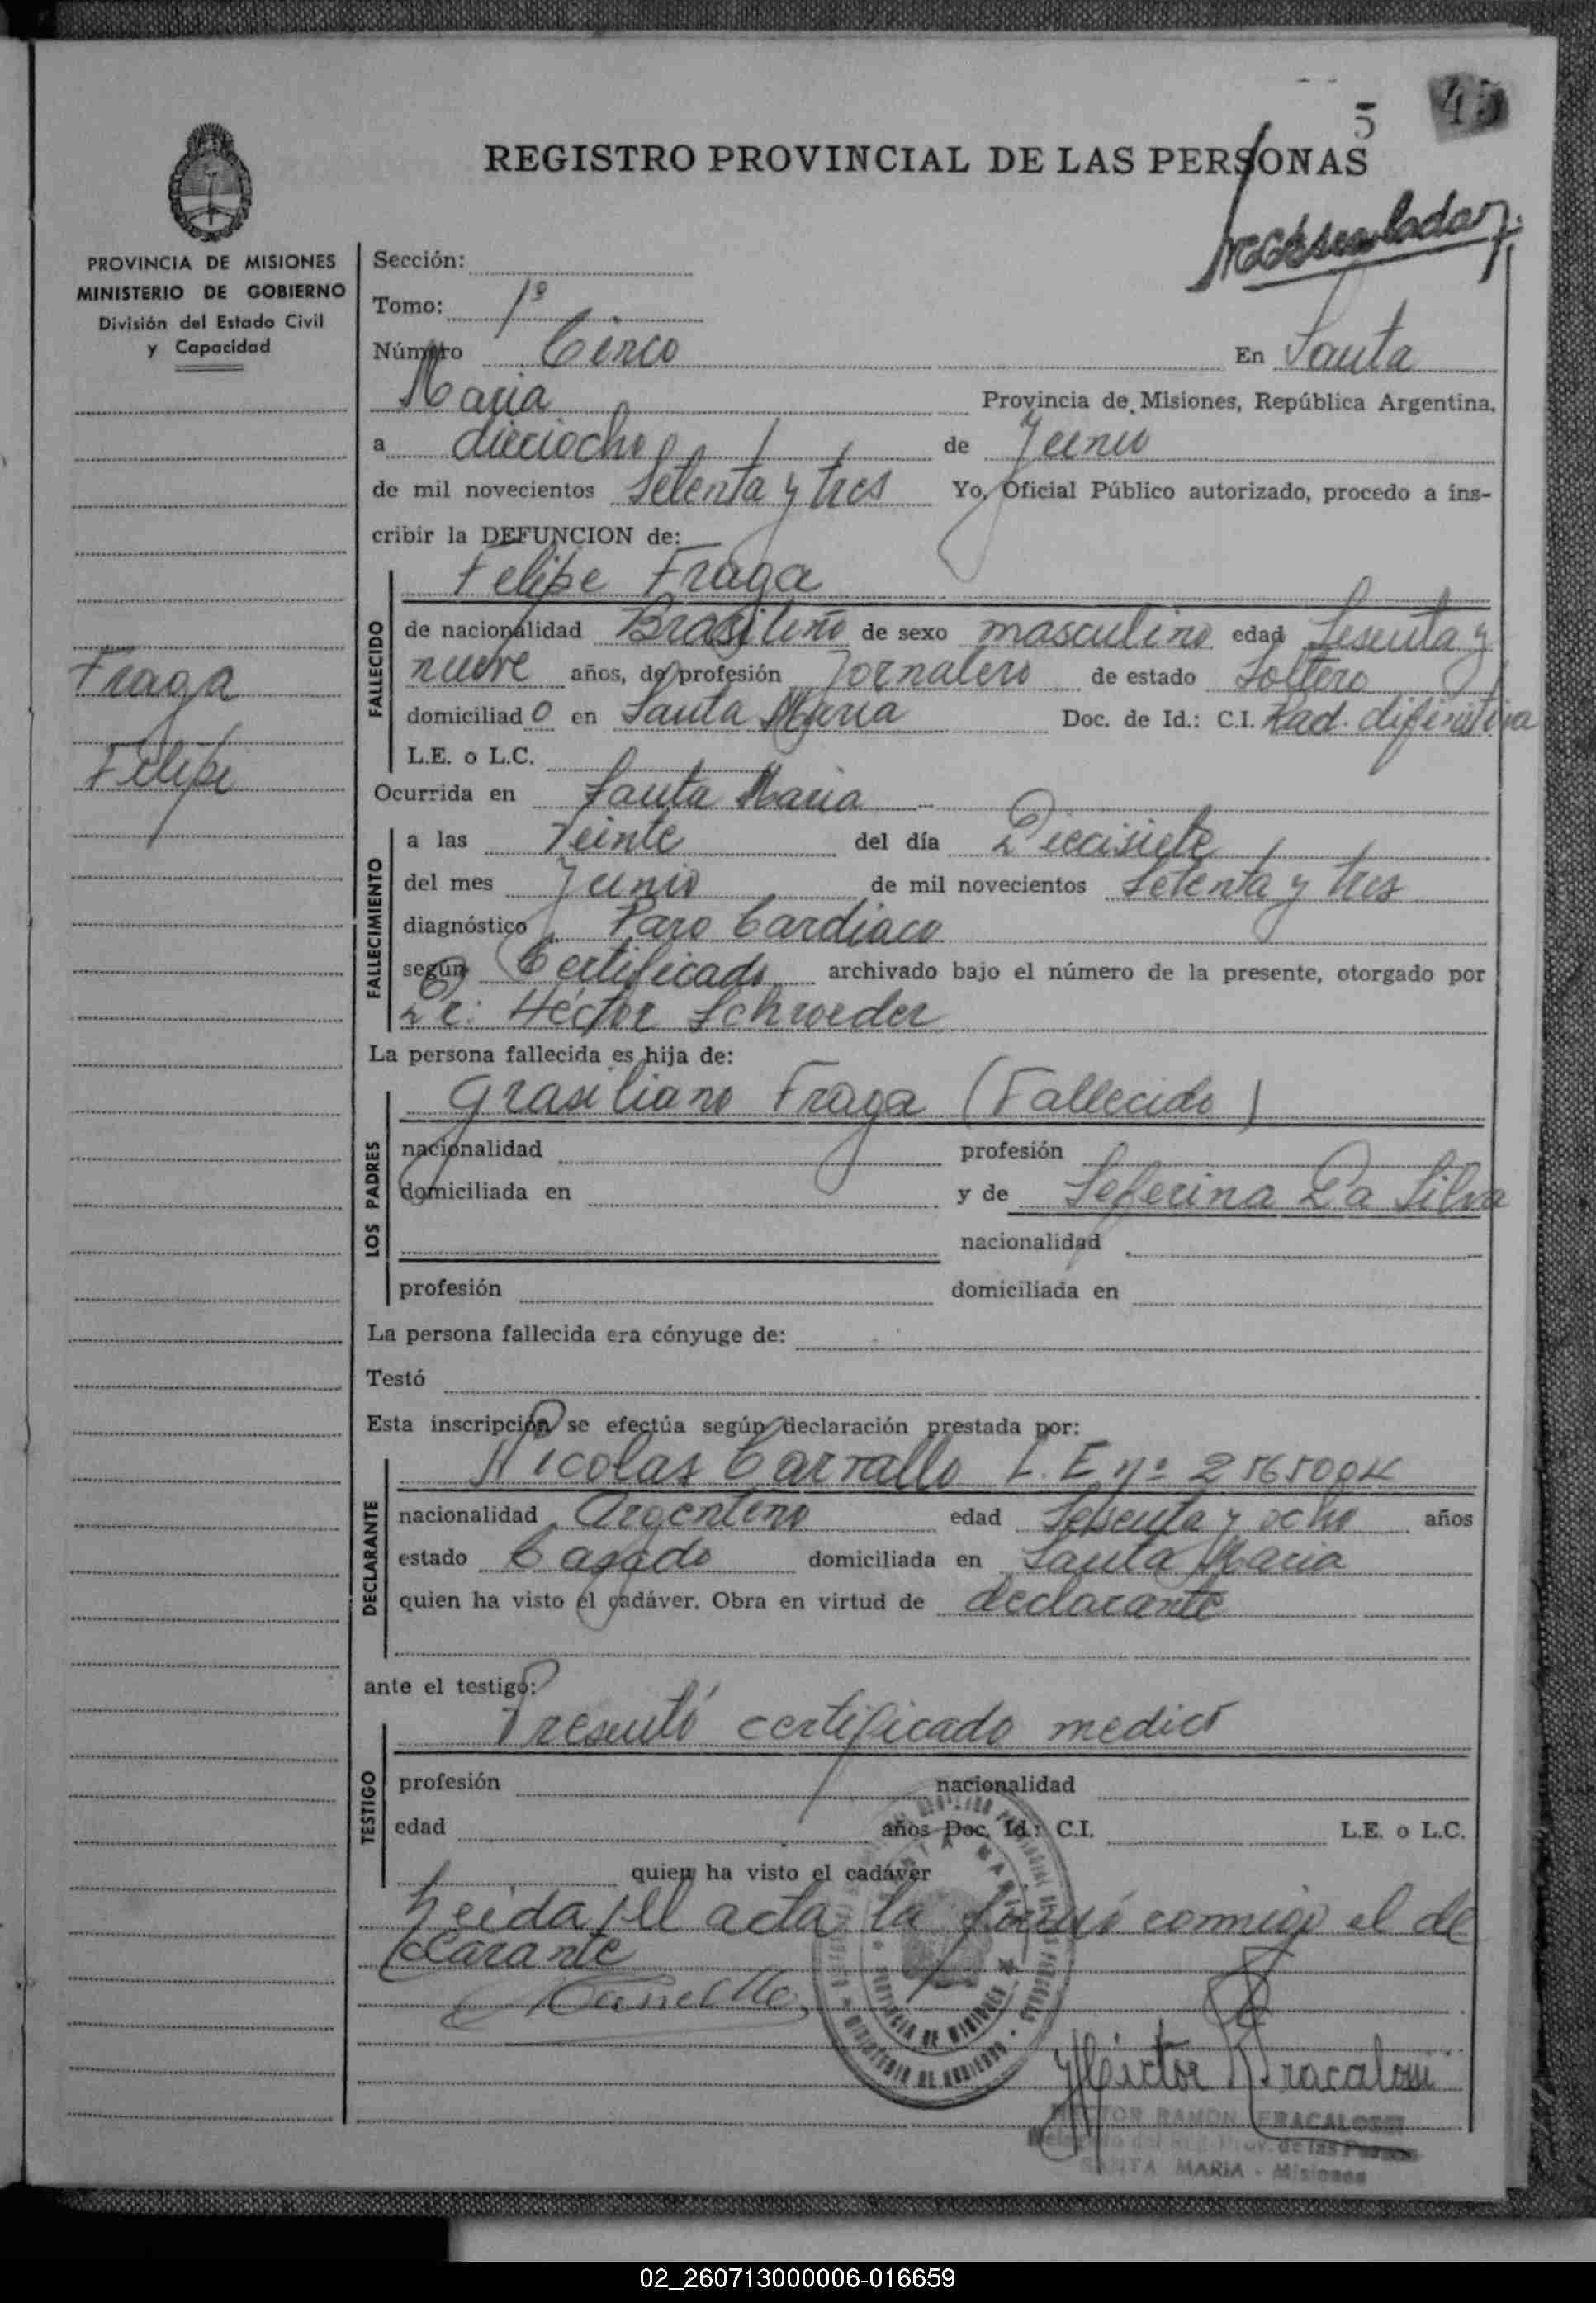 5 45
REGISTRO PROVINCIAL DE LAS PERSONAS
PROVINCIA DE MISIONES
MINISTERIO DE GOBIERNO
División del Estado Civil
y Capacidad
Fraga
Felipe
Sección:
Tomo: 1º
Número Cinco En Santa
Maria Provincia de Misiones, República Argentina,
a dieciocho de Junio
de mil novecientos Setenta y tres Yo, Oficial Público autorizado, procedo a ins-
cribir la DEFUNCION de:
Felipe Fraga
FALLECIDO
de nacionalidad Brasileño de sexo masculino edad Sesenta y
nueve años, de profesión Jornalero de estado Soltero
domiciliado en Santa Maria Doc. de Id.: C.I. Rad. difinitiva
L.E. o L.C.
Ocurrida en Santa Maria
FALLECIMIENTO
a las Veinte del día Diecisiete
del mes Junio de mil novecientos Setenta y tres
diagnóstico Paro Cardiaco
según Certificado archivado bajo el número de la presente, otorgado por
Dr. Héctor Schroeder
La persona fallecida es hija de:
LOS PADRES
Grasiliano Fraga (Fallecido)
nacionalidad profesión
domiciliada en y de Seferina Da Silva
nacionalidad
profesión domiciliada en
La persona fallecida era cónyuge de:
Testó
Esta inscripción se efectúa según declaración prestada por:
DECLARANTE
Nicolas Carvallo L.E nº
nacionalidad Argentino edad Sesenta y ocho años
estado Casado domiciliada en Santa Maria
quien ha visto el cadáver. Obra en virtud de declarante
ante el testigo:
TESTIGO
Presentó certificado medico
profesión nacionalidad
edad años Doc. Id.: C.I. L.E. o L.C.
quien ha visto el cadáver
Leida el acta la conmigo el de
clarante
Héctor R. Fracalossi
HECTOR RAMON FRACALOSSI
Prov. de las
SANTA MARIA - Misiones
PROVINCIA DE MISIONES
MINISTERIO DE GOBIERNO
02_260713000006-016659